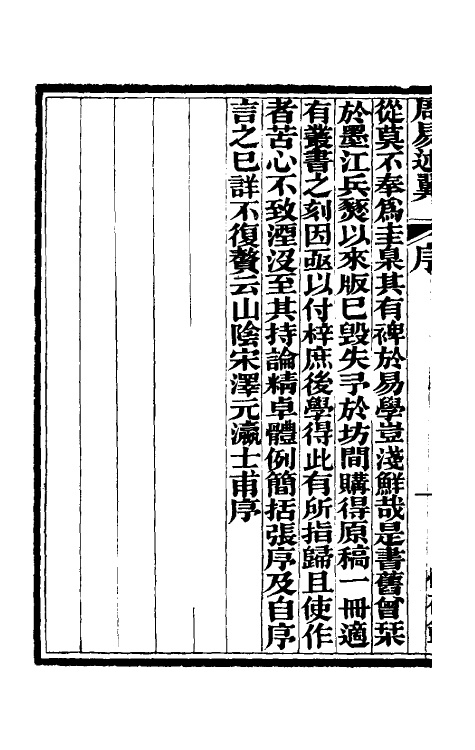 周易述翼
序
從莫不奉爲圭臬其有裨於易學豈淺鮮哉是書舊曾栞
於墨江兵燹以來版已毀失予於坊間購得原稿一冊適
有叢書之刻因亟以付梓庶後學得此有所指歸且使作
者苦心不致湮沒至其持論精卓體例簡括張序及自序
言之已詳不復贅云山陰宋澤元瀛士甫序